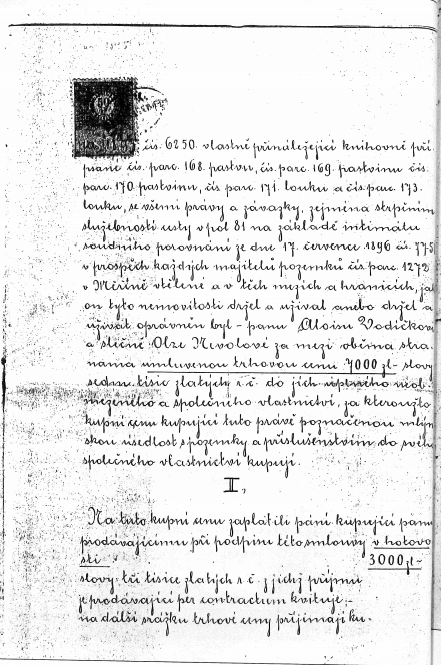 čís. 6250. vlastně přináležející knihovně při-
psané čís. parc. 168. pastvu, čís. parc. 169. pastvinu čís.
parc. 170. pastvinu, čís parc. 171. louku a čís. parc. 173.
louku, se všemi právy a závazky, zejména strpěním
služebnosti cesty v pol 81 na základě intimátu
soudního porovnání ze dne 17. července 1896 čís. 775
v prospěch každých majitelů pozemků čís parc 1272
v Měříně vtělené a v těch mezích a hranicích, jak
on tyto nemovitosti držel a užíval anebo držel a
užívat oprávněn byl – panu Aloisu Vodičkovi
a slečně Olze Nevolové za mezi oběma stra-
nama umluvenou trhovou cenu 7000 zl – slovy
sedm tisíc zlatých r. č. do jich úplného neob-
mezeného a společného vlastnictví, za kteroužto
kupní cenu kupující tuto právě poznačenou mlýn-
skou usedlost s pozemky a příslušenstvím do svého
společného vlastnictví kupují.
II,
Na tuto kupní cenu zaplatili páni kupující panu
prodávajícímu při podpisu této smlouvy v hotovo
sti 3000 zl –
slovy tři tisíce zlatých r. č. z jichž příjmu
je prodávající per contractum kvituje –
na další srážku trhové ceny přijímají k u.